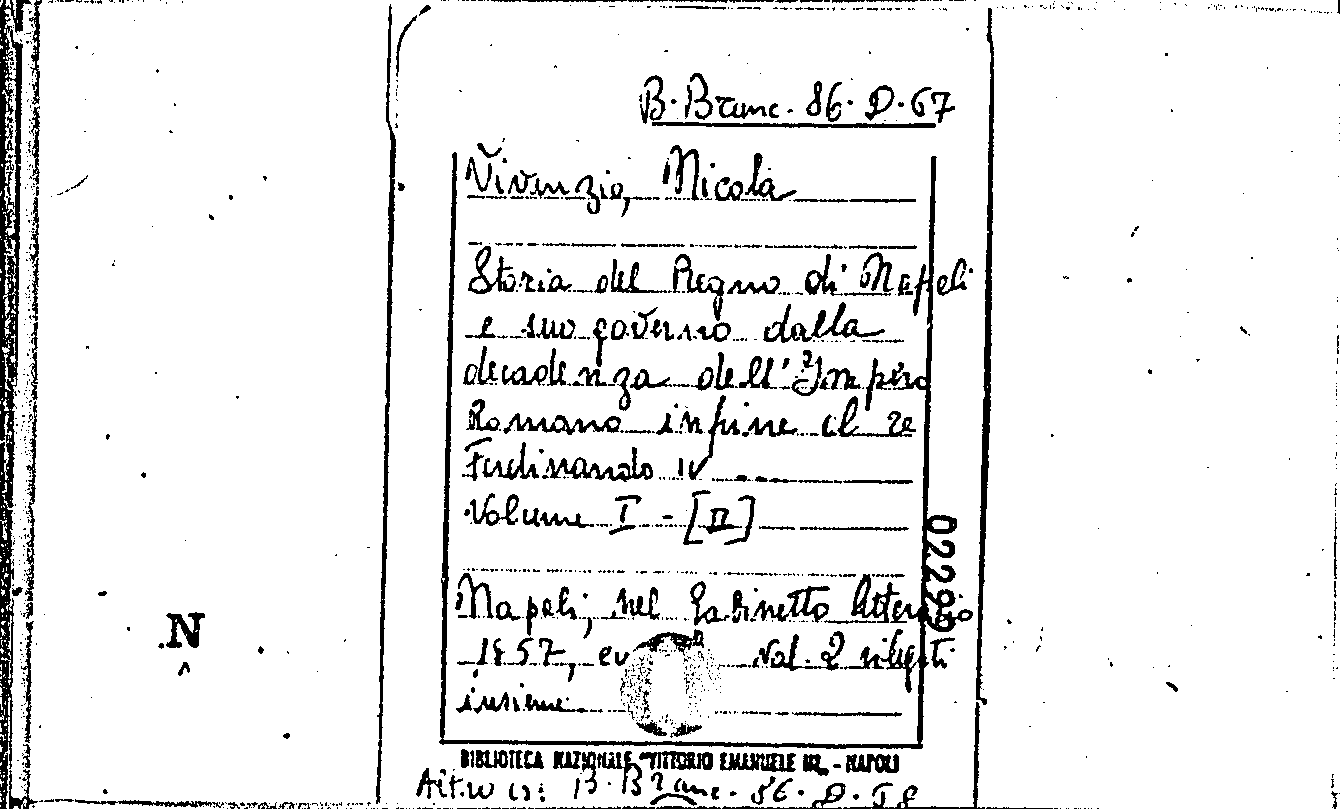 B. Branc. 86. D. 67
Vivenzio, Nicola
Storia del Regno di Napoli
e suo governo dalla
decadenza dell'Impero
Romano infine al re
Ferdinando IV ....
Volume I - [II]
02299
Napoli, nel Gabinetto letterario
1857, vol. 2 rilegati
insieme.
BIBLIOTECA NAZIONALE "VITTORIO EMANUELE III" - NAPOLI
Altro es: B. Branc. 86. D. 58
N